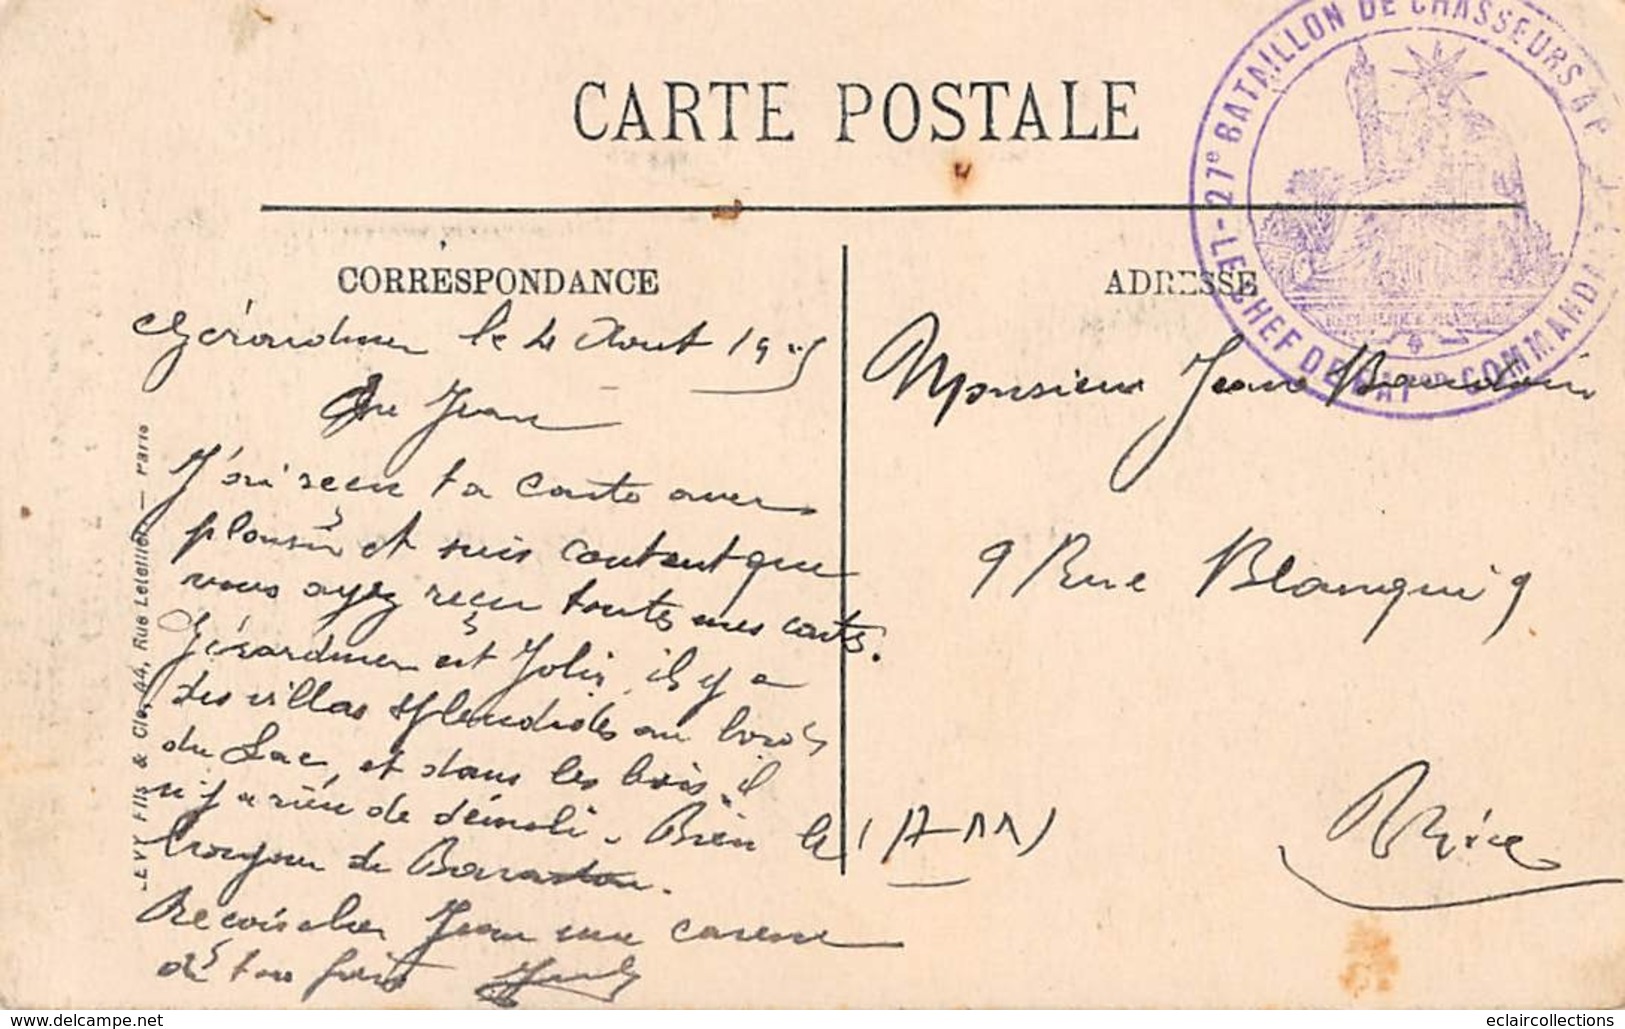 CARTE POSTALE
27e BATAILLON DE CHASSEURS ALP
LE CHEF DE BATon COMMANDANT
REPUBLIQUE FRANÇAISE
CORRESPONDANCE
ADRESSE
Gérardmer le 4 Aout 19
Jean
J'ai reçu ta carte avec
plaisir et suis content que
vous ayez reçu toutes mes cartes.
Gérardmer est Jolie, il y a
des villas splendides au bords
du Lac, et dans les bois, il
n'y a rien de démoli. Bien le
bonjour de
Recois cher Jean une caresse
de ton
Monsieur Jean Baudoin
9 Rue Blanqui 9
Nice
(A-MM)
LEVY Fils & Cie, 44, Rue Letellier — Paris
delcampe.net
eclaircollections